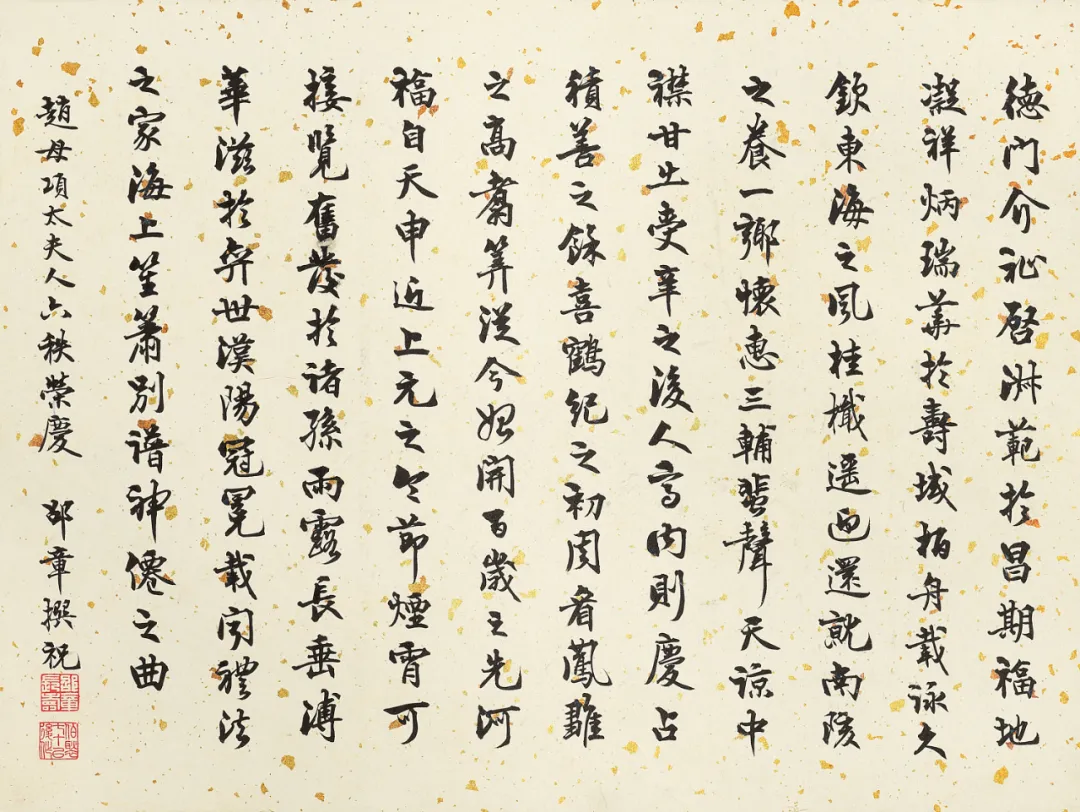 德門介祉啓淑範於昌期福地
凝祥炳瑞華於壽域柏舟載詠久
欽東海之風桂檝遥迴還就南陔
之養一鄉懷惠三輔蜚聲天諒中
襟甘出受辛之後人高内則慶占
積善之餘喜鶴紀之初周看鳳雛
之高翥筭從今始開百歲之先河
福自天申近上元之令節煙霄可
接覽奮發於諸孫雨露長垂溥
華滋於弈世漢陽冠冕載聞禮法
之家海上笙簫别譜神僊之曲
趙母項太夫人六秩榮慶 邵章撰祝